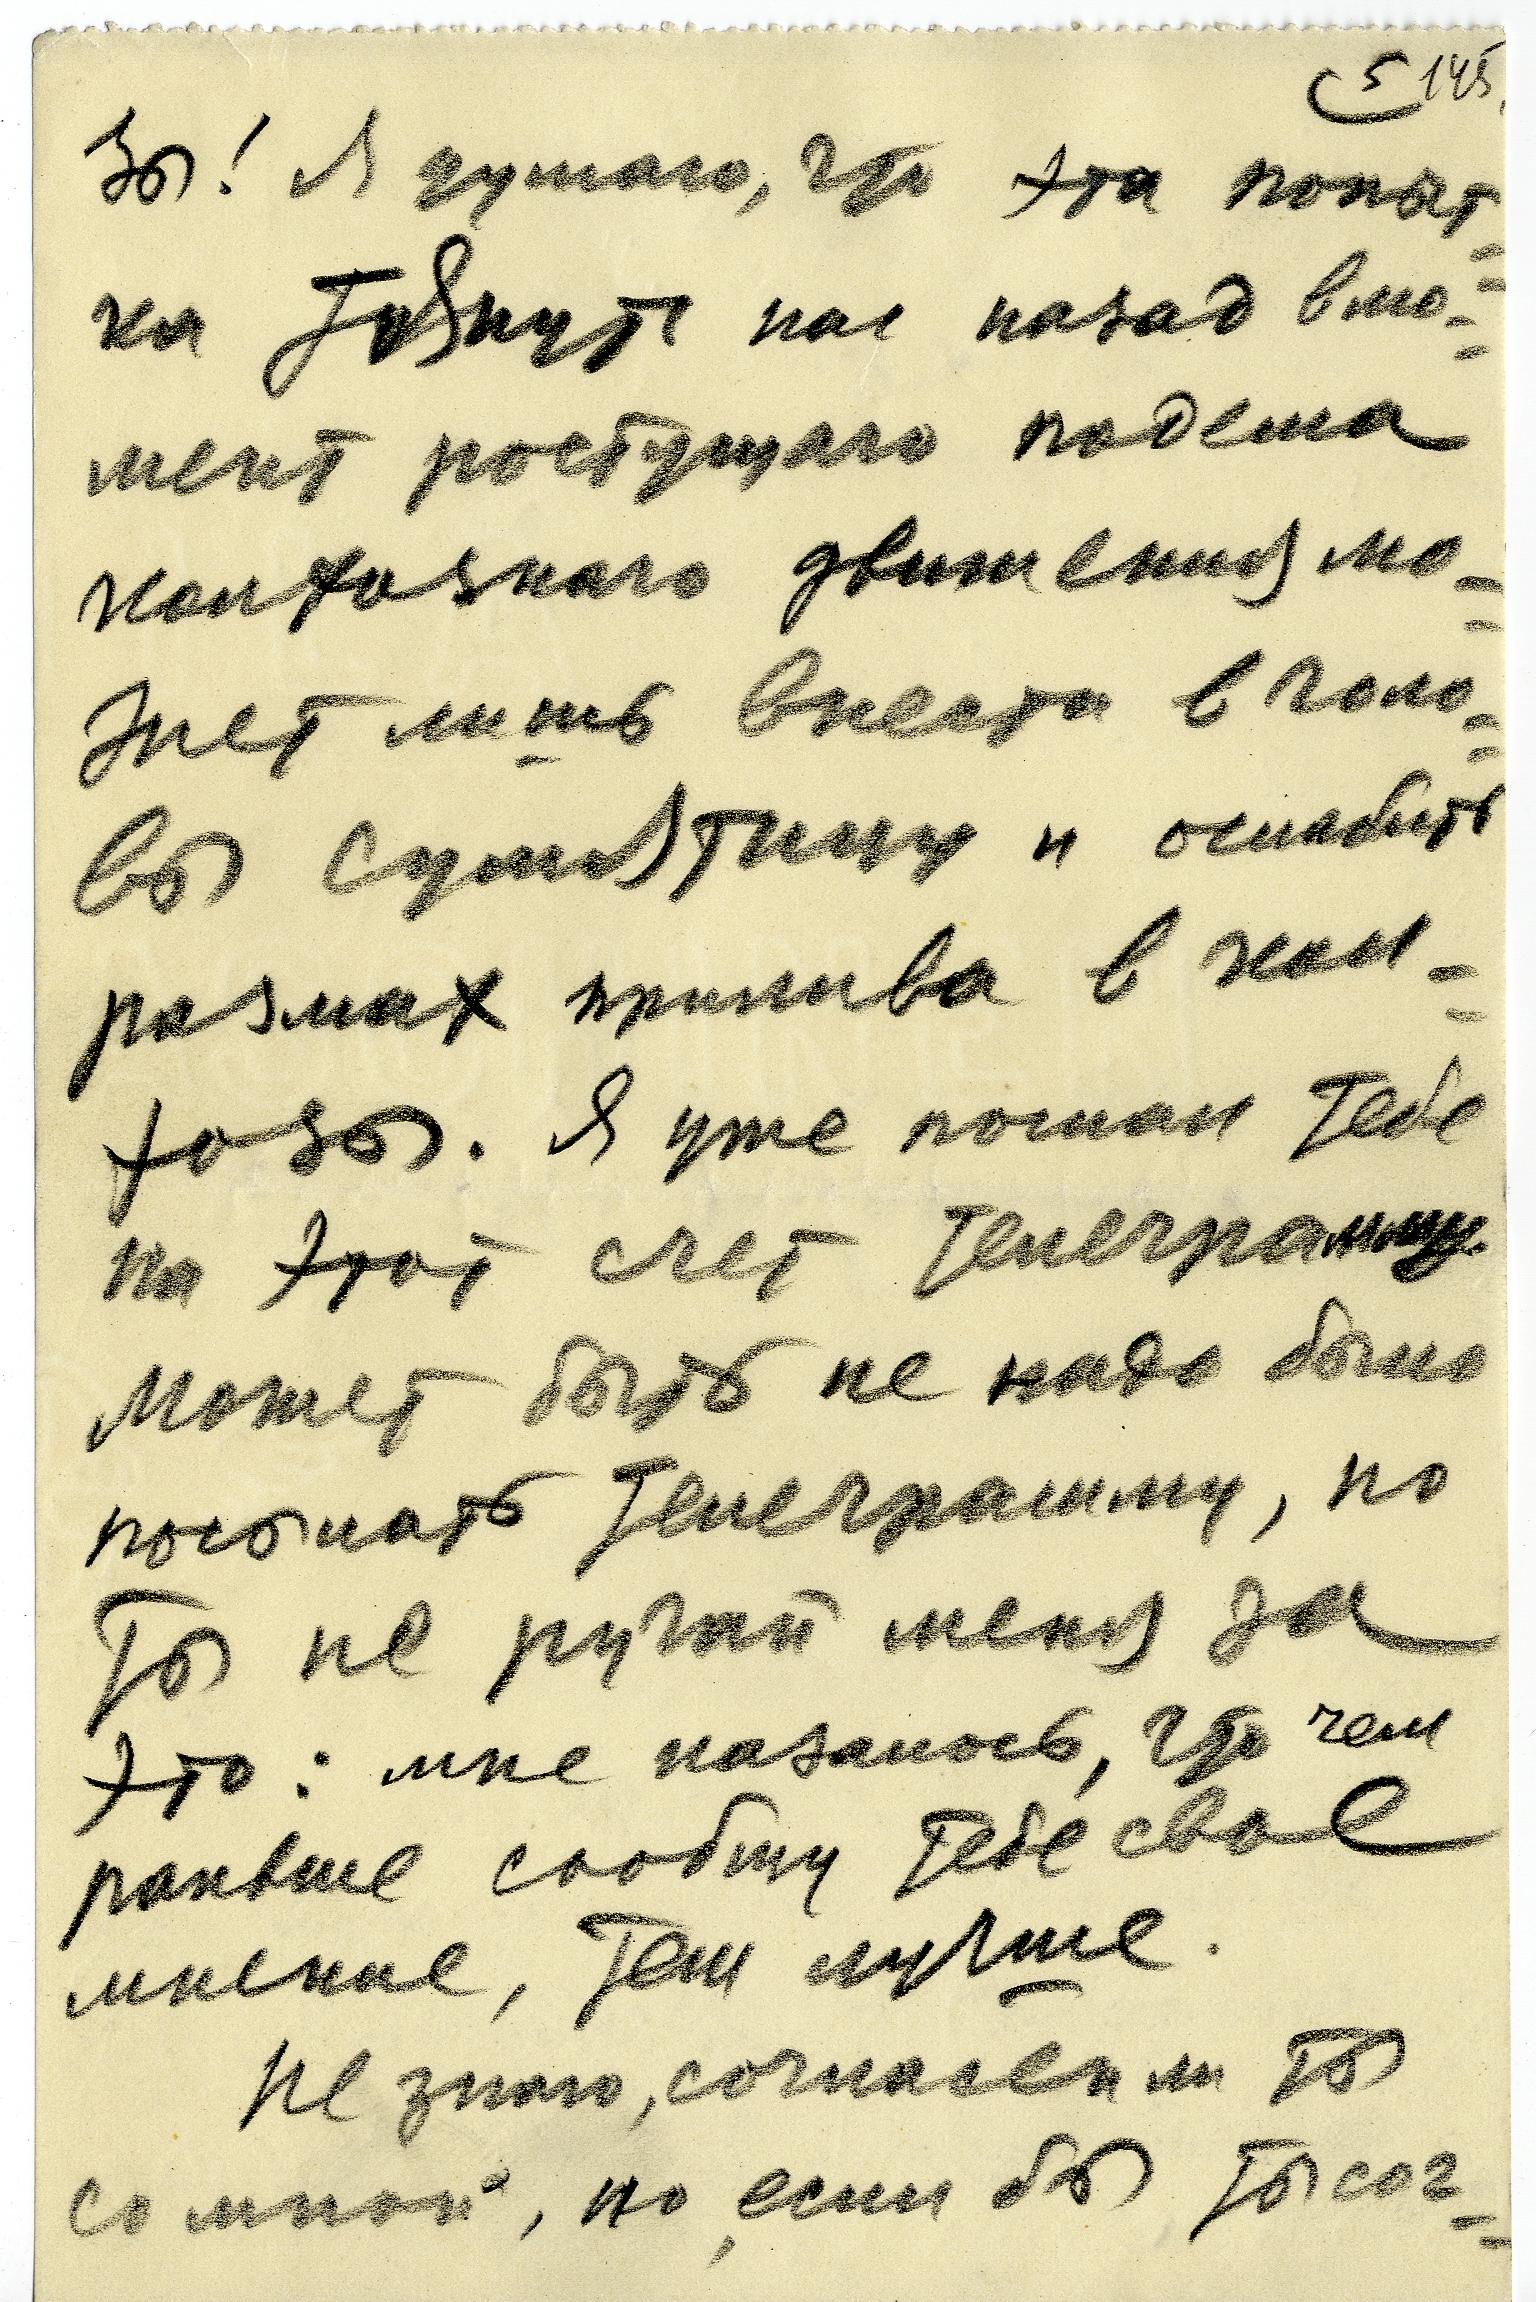 5 145.
зы! Я думаю, что эта попыт=
ка тянуть нас назад в мо=
мент ростущаго подема
колхозного движения мо=
жет лишь внести в голо=
вы сумятицу и ослабить
размах прилива в кол=
хозы. Я уже послал тебе
на этот счет телеграмму.
Может быть не надо было
посылать телеграмму, но
ты не ругай меня за
это: мне казалось, что чем
раньше сообщу тебе свое
мнение, тем лучше.
Не знаю, согласен ли ты
со мной, но, если бы ты сог=